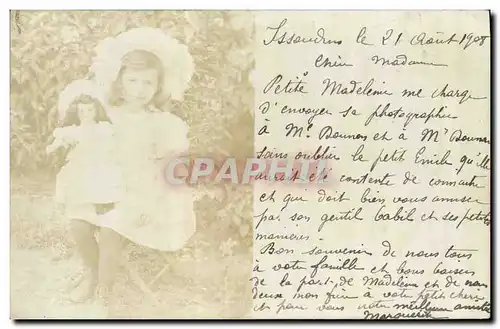 Issoudun le 21 Août 1908
Chère Madame
Petite Madeleine me charge
d'envoyer sa photographie
à Mr et à Mr
sans oublier le petit Emile qu'elle
aurait été contente de connaître
et qui doit bien vous amuser
par son gentil babil et ses petites
manières.
Bon souvenir de nous tous
à votre famille et bons baisers
de la part de Madeleine et de
mon frère à votre petit chéri
et pour vous notre meilleure amitié
Marguerite
CPA
www.cparama.com